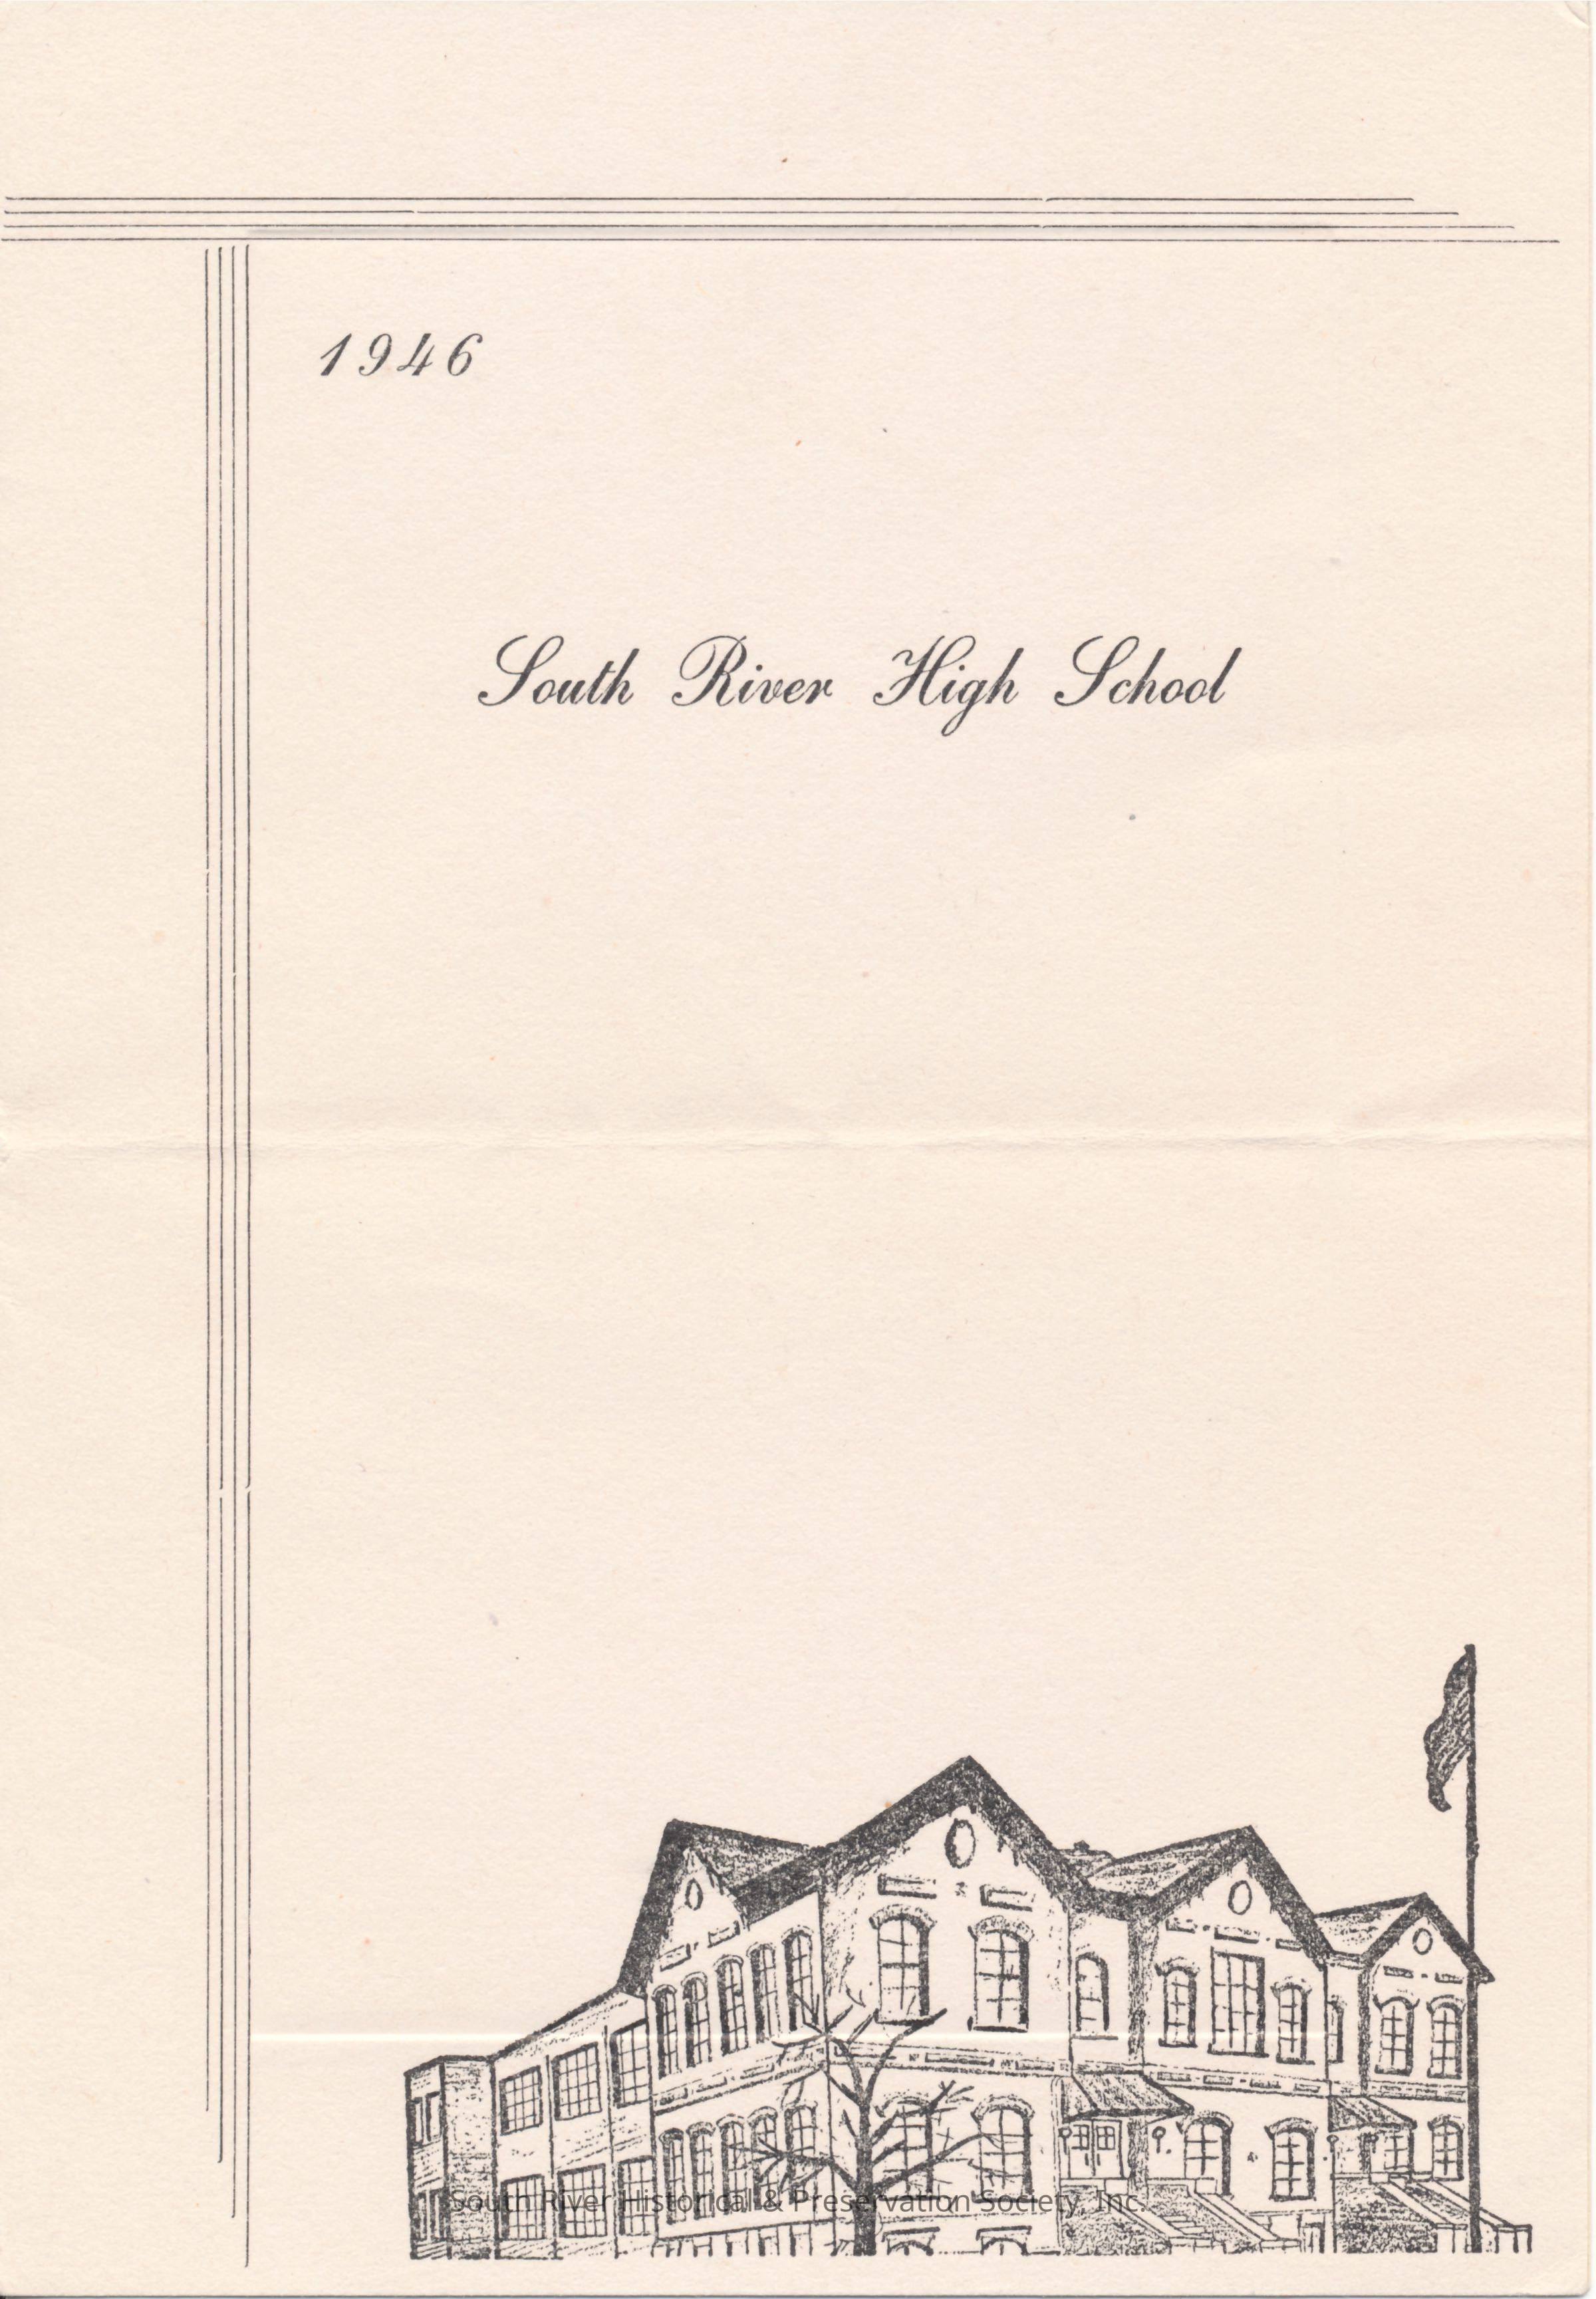 1946
South River High School
South River Historical & Preservation Society, Inc.